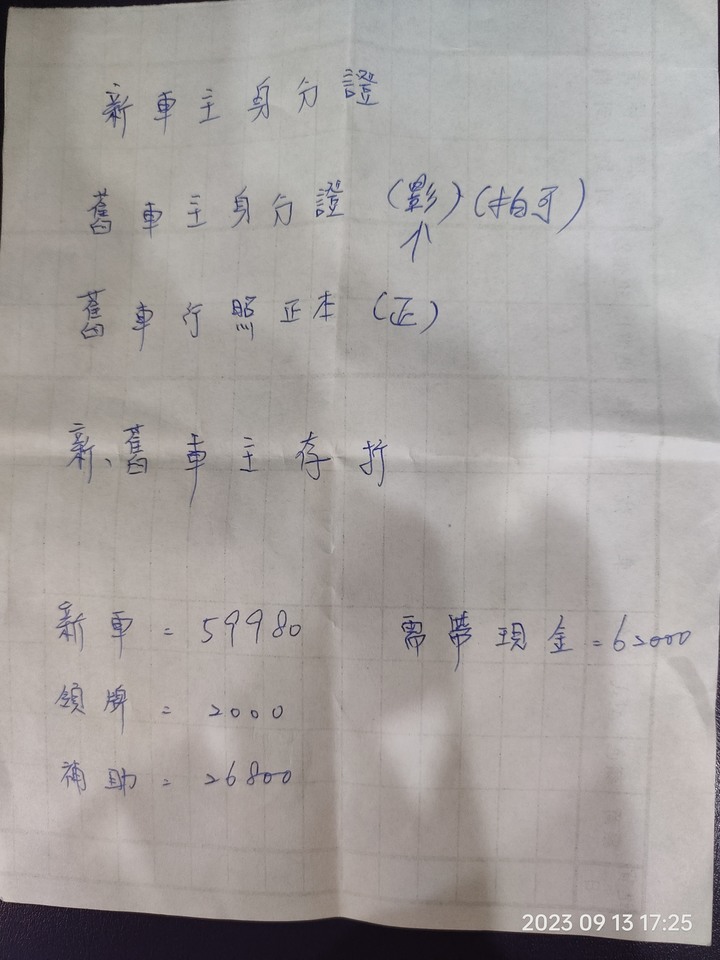 新車主身分證
舊車主身分證 (影) (拍可)
↑
舊車行照正本 (正)
新、舊車主存折
新車 = 59980 需帶現金 = 62000
領牌 = 2000
補助 = 26800
2023 09 13 17:25